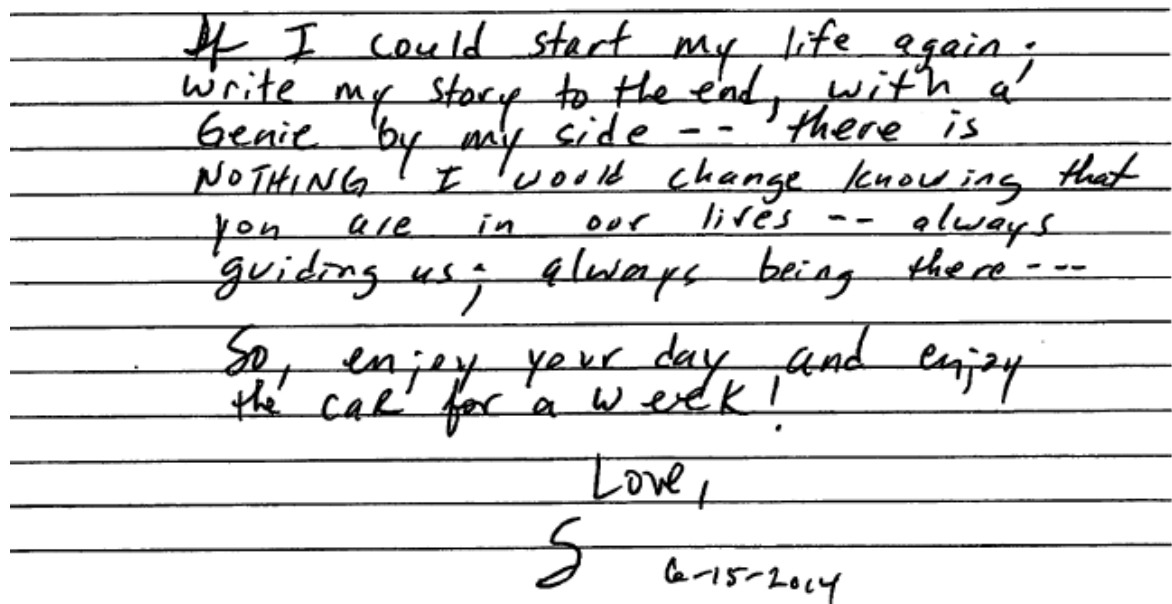 If I could start my life again;
write my story to the end, with a
Genie by my side -- there is
NOTHING I would change knowing that
you are in our lives -- always
guiding us; always being there ---
So, enjoy your day and enjoy
the caR for a week!
Love,
S
6-15-2014